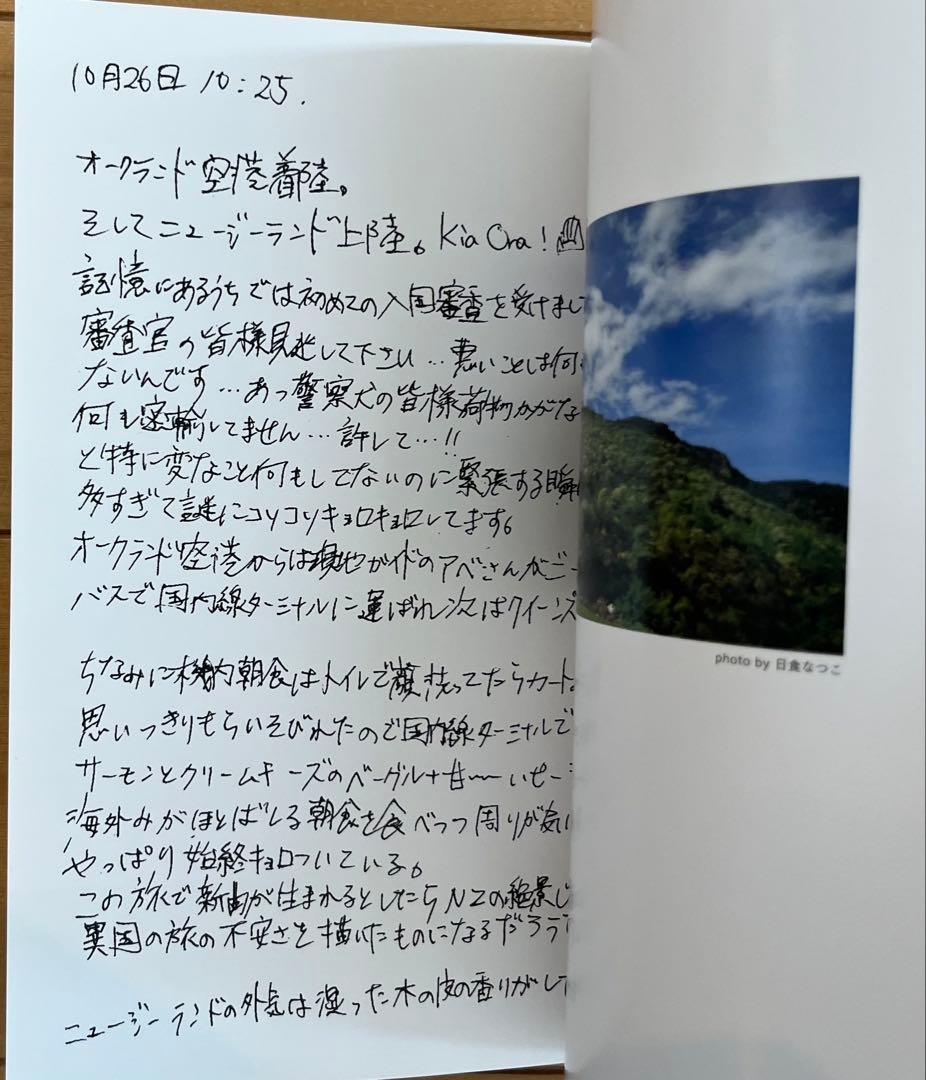 10月26日 10:25.
オークランド空港着陸。
そしてニュージーランド上陸。Kia Ora!
記憶にあるうちでは初めての入国審査を受けまし
審査官の皆様見逃して下さい…悪いことは何
ないんです…あっ警察犬の皆様荷物かがな
何も密輸してません…許して…!!
と特に変なこと何もしてないのに緊張する瞬
多すぎて謎にコソコソキョロキョロしてます。
オークランド空港からは現地ガイドのアベさんがご
バスで国内線ターミナルに運ばれ次はクイーンズ
ちなみに機内朝食はトイレで顔洗ってたらカート
思いっきりもらいそびれたので国内線ターミナルで
サーモンとクリームチーズのベーグル+甘〜いモー
海外みがほとばしる朝食を食べつつ周りが気に
やっぱり始終キョロついている。
この旅で新曲が生まれるとしたらNZの絶景じ
異国の旅の不安さを描いたものになるだろう
ニュージーランドの外気は湿った木の皮の香りがして
photo by 日食なつこ